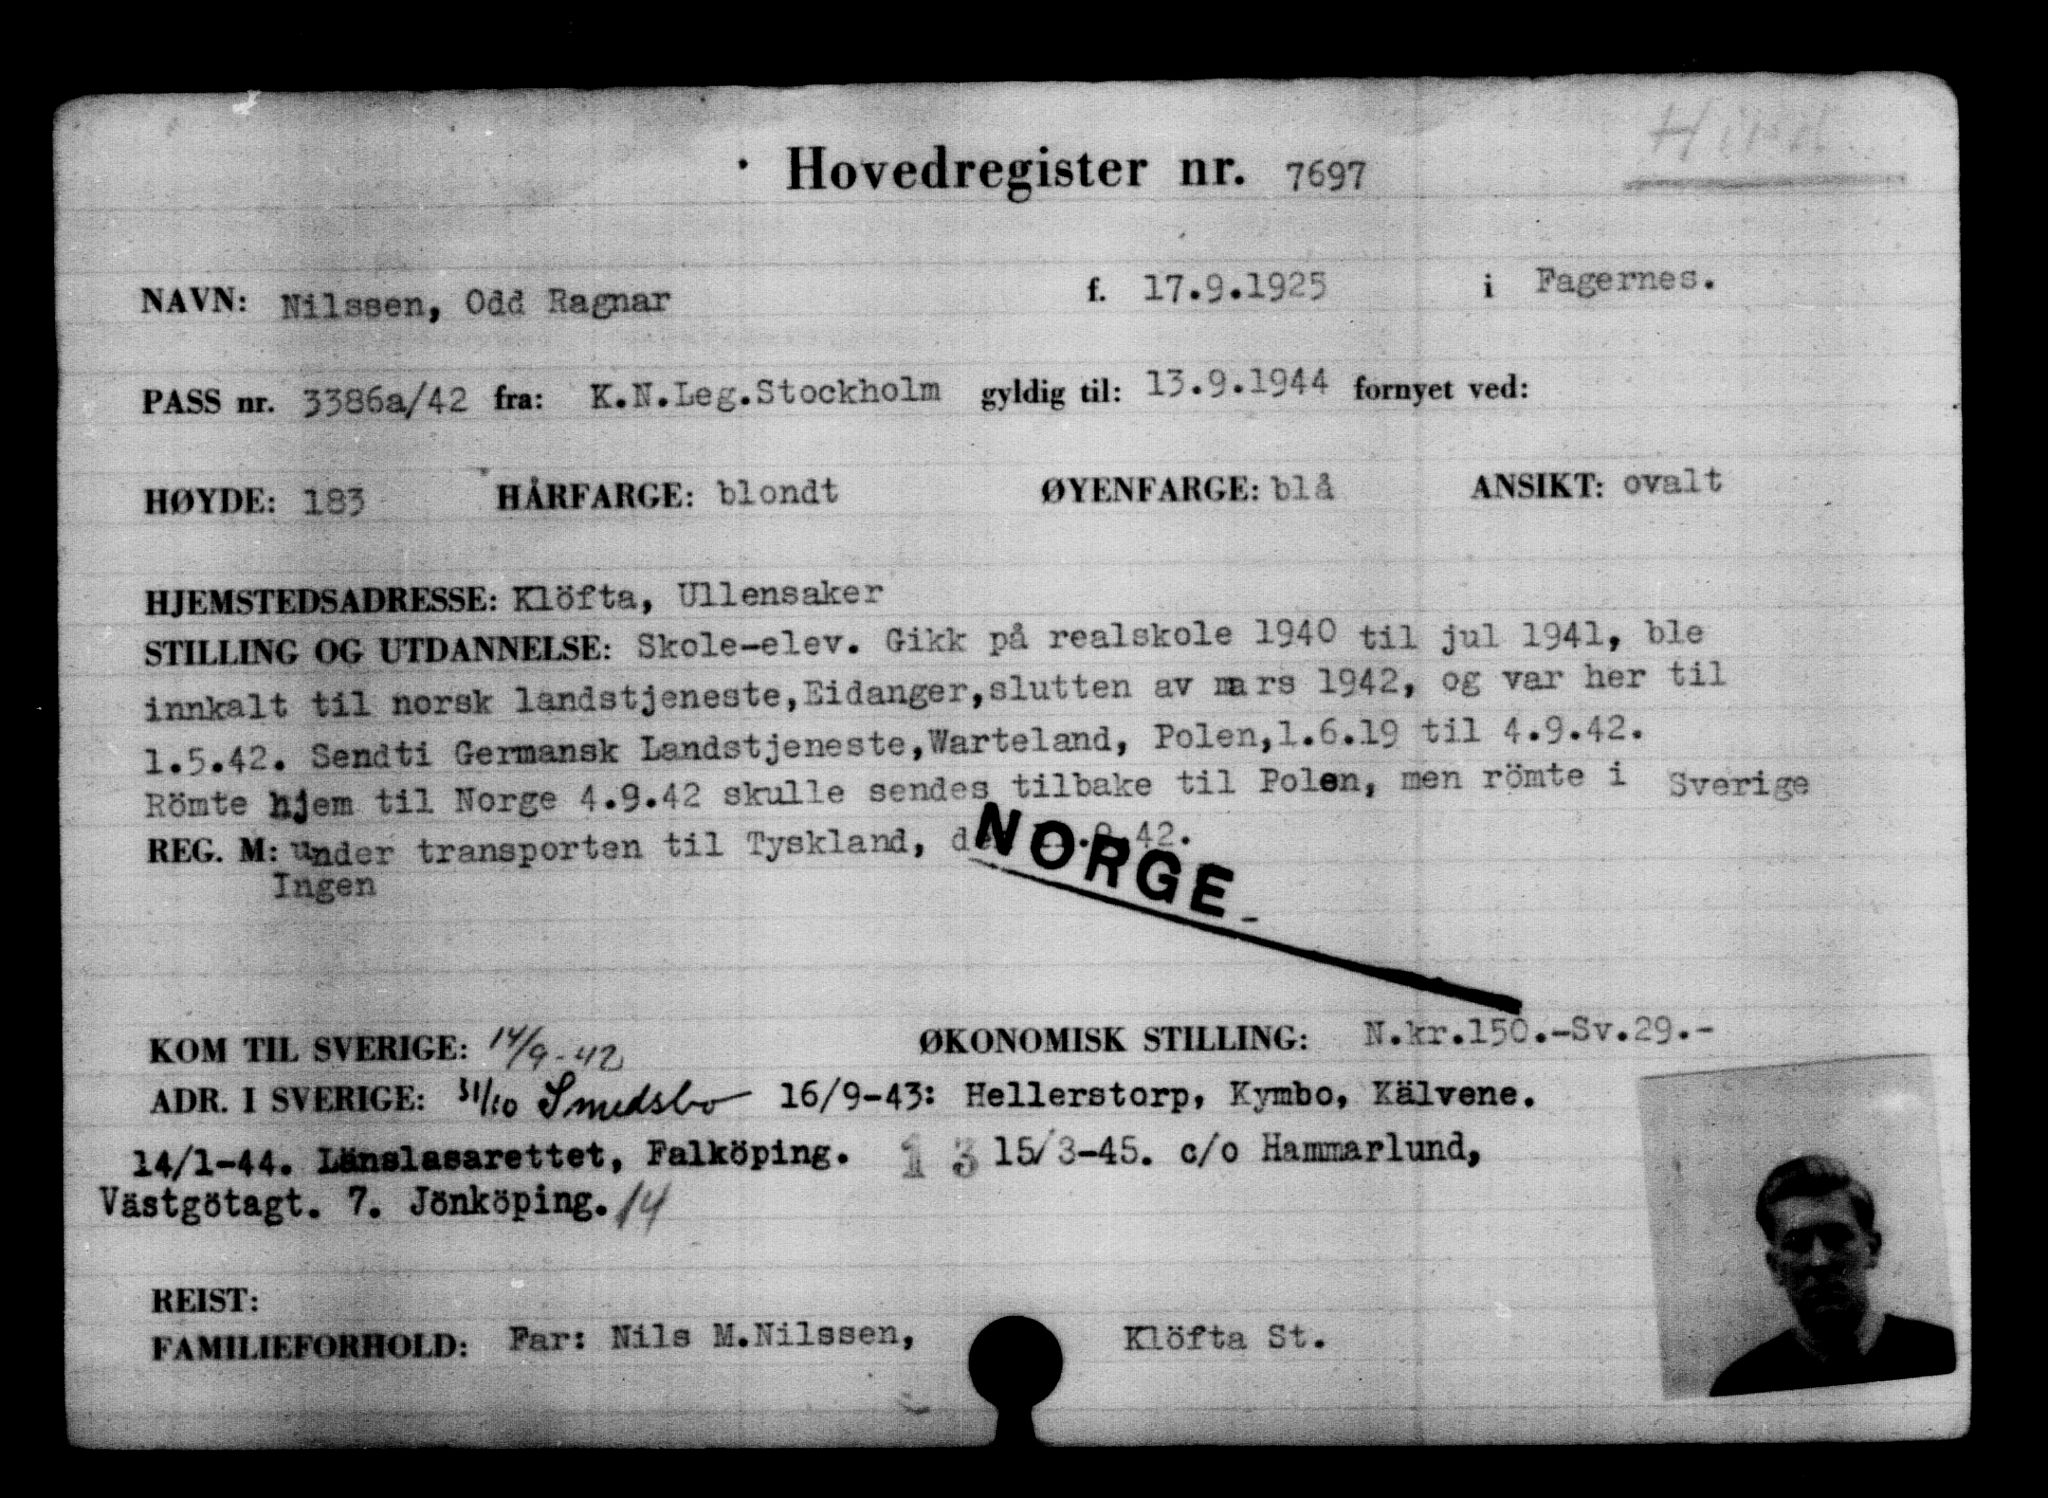 Hird
Hovedregister nr. 7697
NAVN: Nilssen, Odd Ragnar f. 17.9.1925 i Fagernes.
PASS nr. 3386a/42 fra: K.N.Leg.Stockholm gyldig til: 13.9.1944 fornyet ved:
HØYDE: 183 HÅRFARGE: blondt ØYENFARGE: blå ANSIKT: ovalt
HJEMSTEDSADRESSE: Klöfta, Ullensaker
STILLING OG UTDANNELSE: Skole-elev. Gikk på realskole 1940 til jul 1941, ble
innkalt til norsk landstjeneste,Eidanger,slutten av mars 1942, og var her til
1.5.42. Sendti Germansk Landstjeneste,Warteland, Polen,1.6.19 til 4.9.42.
Römte hjem til Norge 4.9.42 skulle sendes tilbake til Polen, men römte i Sverige
REG. M: under transporten til Tyskland, 42.
Ingen
NORGE
KOM TIL SVERIGE: 14/9-42 ØKONOMISK STILLING: N.kr.150.-Sv.29.-
ADR. I SVERIGE: 31/10 Smedsbo 16/9-43: Hellerstorp, Kymbo, Kälvene.
14/1-44. Länslasarettet, Falköping. 13 15/3-45. c/o Hammarlund,
Västgötagt. 7. Jönköping. 14
REIST:
FAMILIEFORHOLD: Far: Nils M.Nilssen, Klöfta St.